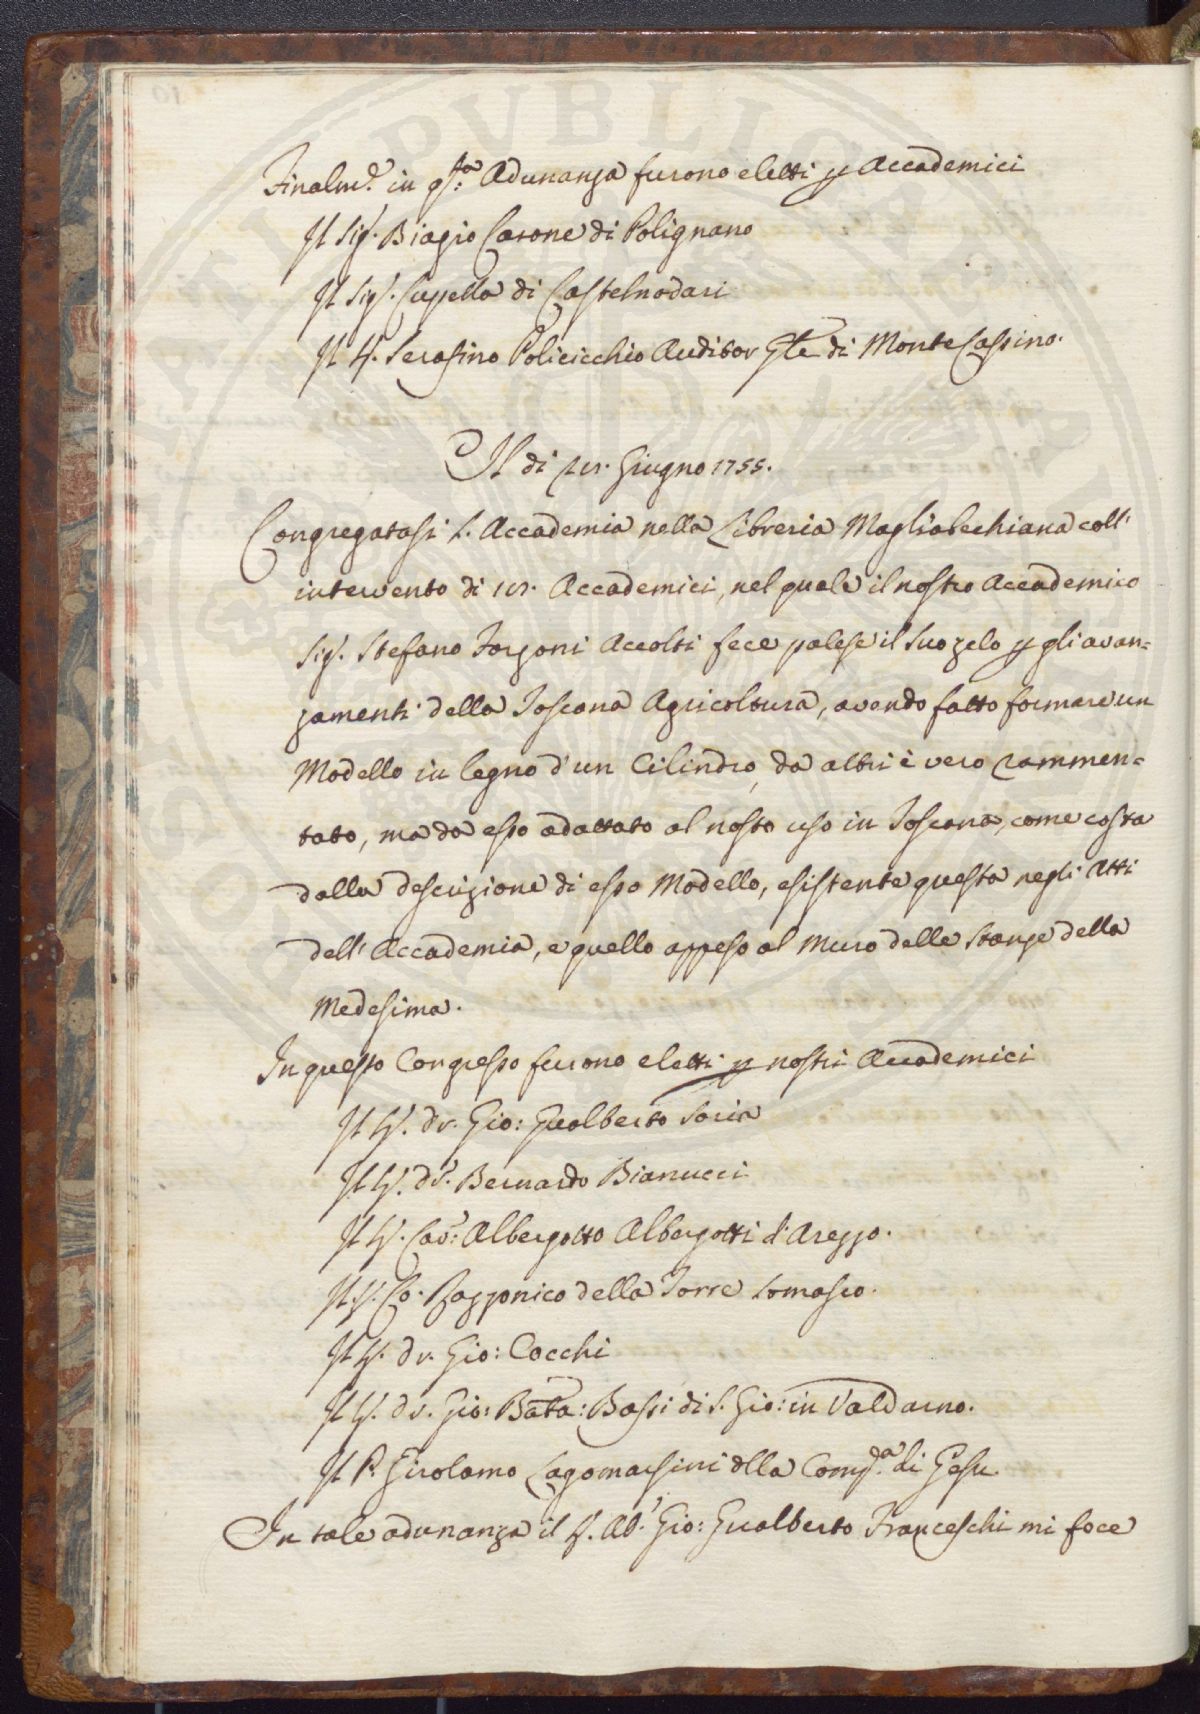 Finalm.e in q.sta Adunanza furono eletti p Accademici
Il Sig.r Biagio Carone di Polignano
Il Sig.r Cupella di Castelnodari
Il S. Serafino Policicchio Auditor Gle di Monte Cassino.
Il di Giugno 1755.
Congregatasi l. Accademia nella Libreria Magliabechiana coll'
intervento di Accademici, nel quale il nostro Accademico
Sig.r Stefano Torzoni Accolti fece palese il suo zelo p gli avan=
zamenti della Toscana Agricoltura, avendo fatto formare un
Modello in legno d'un Cilindro, da altri è vero rammen=
tato, ma da esso adattato al nosto uso in Toscana, come costa
dalla descrizione di esso Modello, esistente questa negli Atti
dell'Accademia, e quello appeso al Muro delle Stanze della
Medesima.
In questo Congresso furono eletti p nostri Accademici
Il S. dr. Gio: Gualberto Soria
Il S. dr. Bernardo Bianucci
Il S. Cav: Albergotto Albergotti d'Arezzo.
Il S. Co. Rezzonico della Torre Comasco.
Il S. dr. Gio: Cocchi
Il S. dr. Gio: Batta: Bassi di S. Gio: in Valdarno.
Il P. Girolamo Lagomarsini dlla Comp.a di Gesu
In tale adunanza il S. Ab. Gio: Gualberto Franceschi mi fece